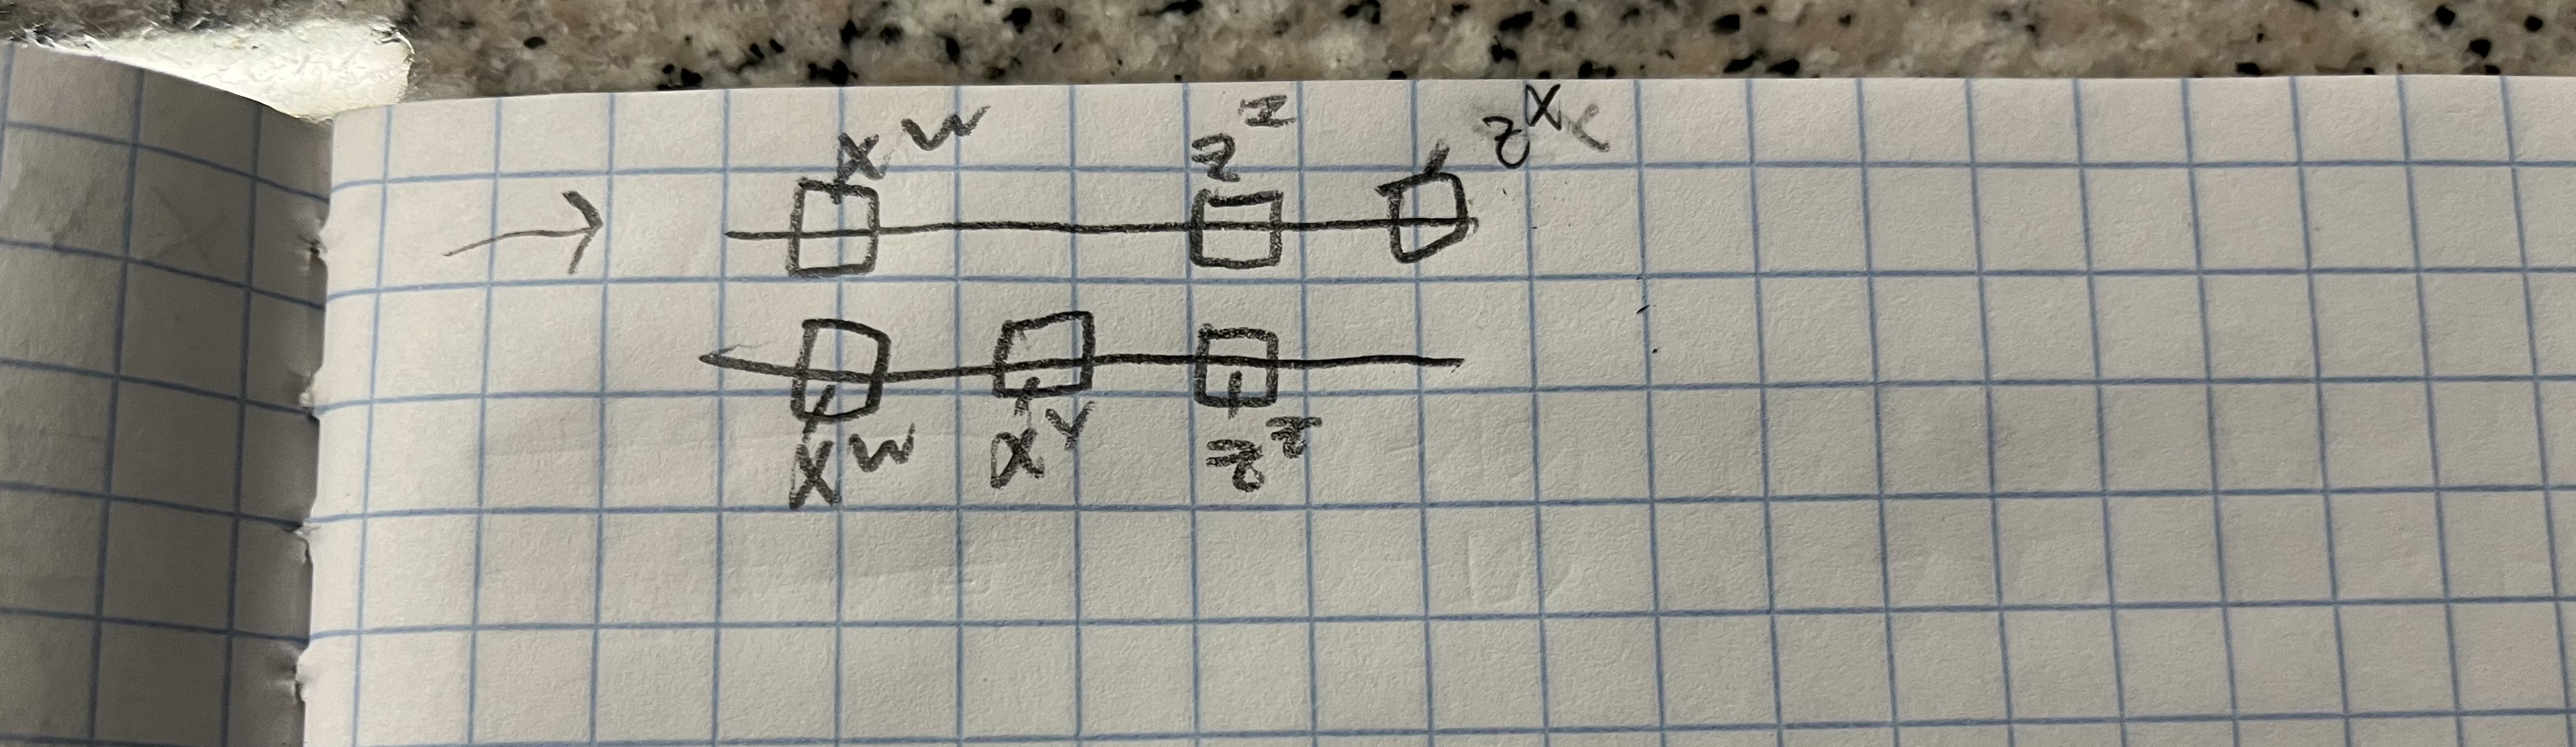 X^W z^z z^X
X^W X^Y z^z